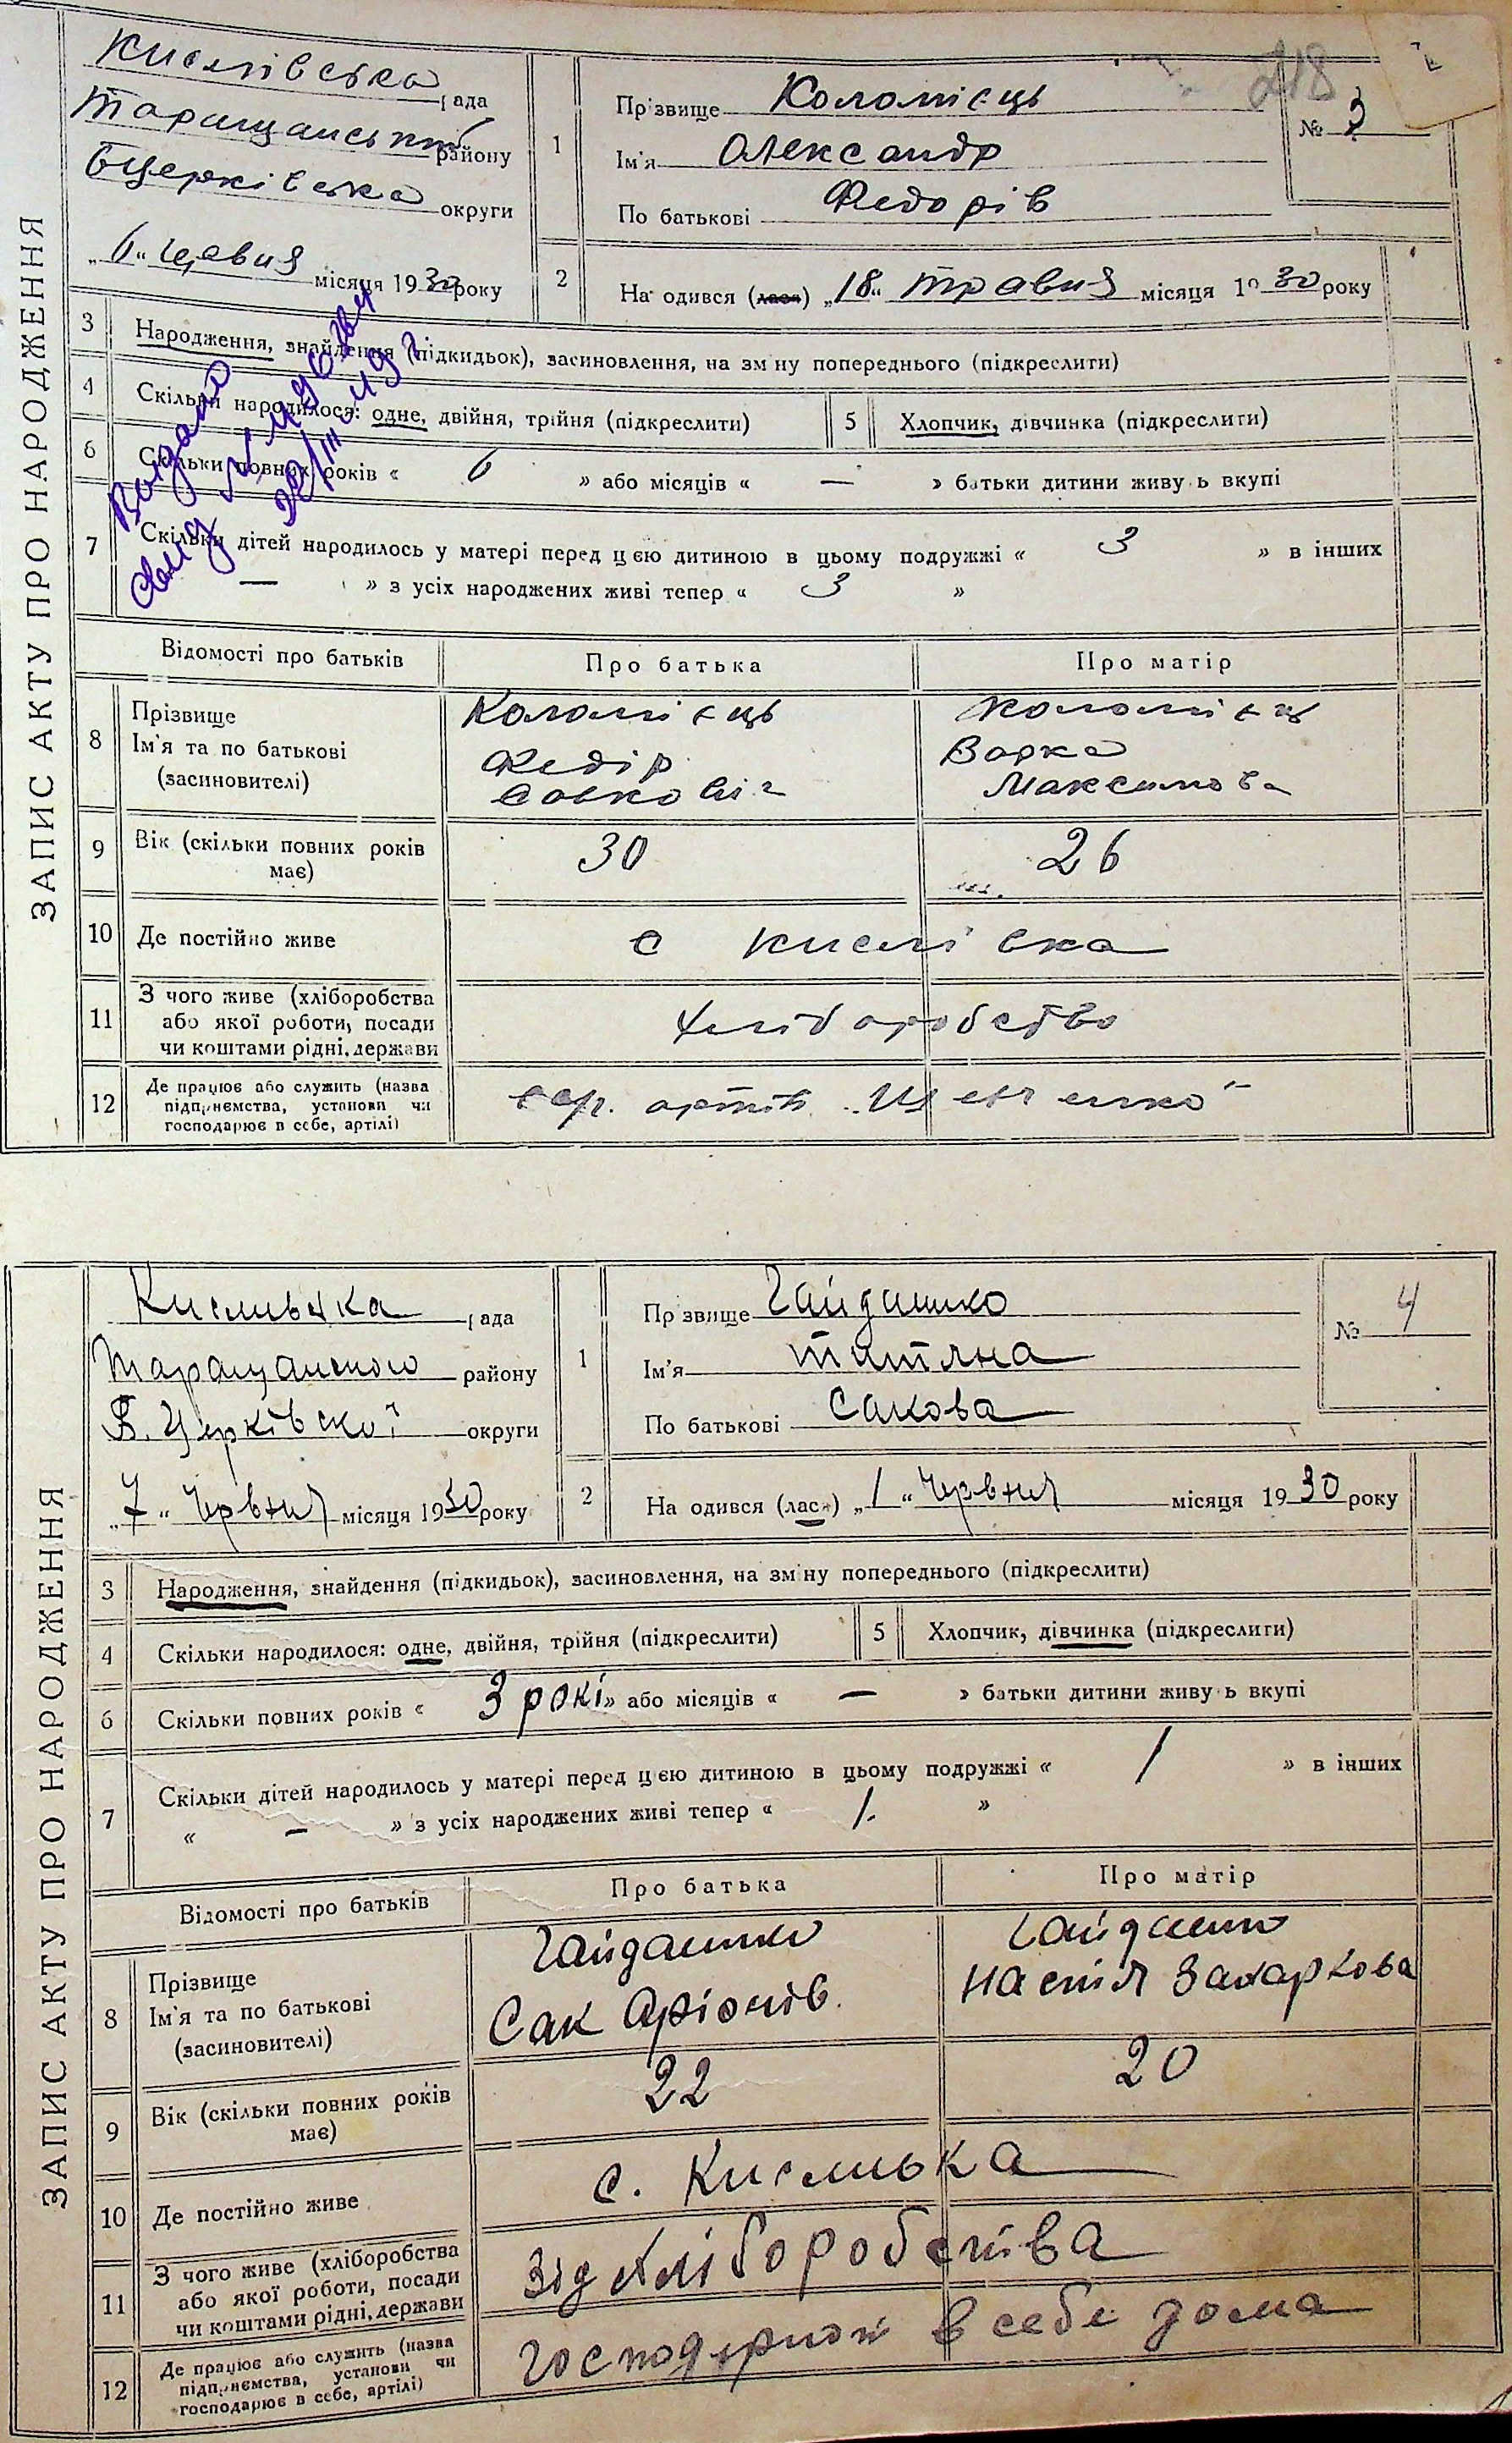 218
ЗАПИС АКТУ ПРО НАРОДЖЕННЯ
Кислівська рада
Таращанський району
Бцерківська округи
„6“ червня місяця 1930 року
1
Прізвище Коломієць
Ім'я Олександр
По батькові Федорів
№ 3
2
На одився (лася) „18“ травня місяця 1930 року
3 Народження, знайдення (підкидьок), засиновлення, на зміну попереднього (підкреслити)
4 Скільки народилося: одне, двійня, трійня (підкреслити)
5 Хлопчик, дівчинка (підкреслити)
6 Скільки повних років « 6 » або місяців « — » батьки дитини живуть вкупі
7 Скільки дітей народилось у матері перед цією дитиною в цьому подружжі « 3 » в інших
— » з усіх народжених живі тепер « 3 »
Відомості про батьків Про батька Про матір
8 Прізвище
Ім'я та по батькові
(засиновителі)
Коломієць
Федір
Савкович
Коломієць
Варка
Максимова
9 Вік (скільки повних років має) 30 26
10 Де постійно живе с Кислівка
11 З чого живе (хліборобства
або якої роботи, посади
чи коштами рідні, держави
хліборобство
12 Де працює або служить (назва
підприємства, установи чи
господарює в себе, артілі)
артіль
ЗАПИС АКТУ ПРО НАРОДЖЕННЯ
Кисливька рада
Таращанского району
Б. Церківскої округи
„7“ Червня місяця 1930 року
1
Прізвище Гайдашко
Ім'я Титяна
По батькові Сакова
№ 4
2
На одився (лася) „1“ Червня місяця 1930 року
3 Народження, знайдення (підкидьок), засиновлення, на зміну попереднього (підкреслити)
4 Скільки народилося: одне, двійня, трійня (підкреслити)
5 Хлопчик, дівчинка (підкреслити)
6 Скільки повних років « 3 рокі » або місяців « — » батьки дитини живуть вкупі
7 Скільки дітей народилось у матері перед цією дитиною в цьому подружжі « 1 » в інших
« — » з усіх народжених живі тепер « 1. »
Відомості про батьків Про батька Про матір
8 Прізвище
Ім'я та по батькові
(засиновителі)
Гайдашко
Сак
Гайдашко
Настя Захаркова
9 Вік (скільки повних років має) 22 20
10 Де постійно живе с. Кисливка
11 З чого живе (хліборобства
або якої роботи, посади
чи коштами рідні, держави
Від хліборобства
12 Де працює або служить (назва
підприємства, установи чи
господарює в себе, артілі)
в себе дома